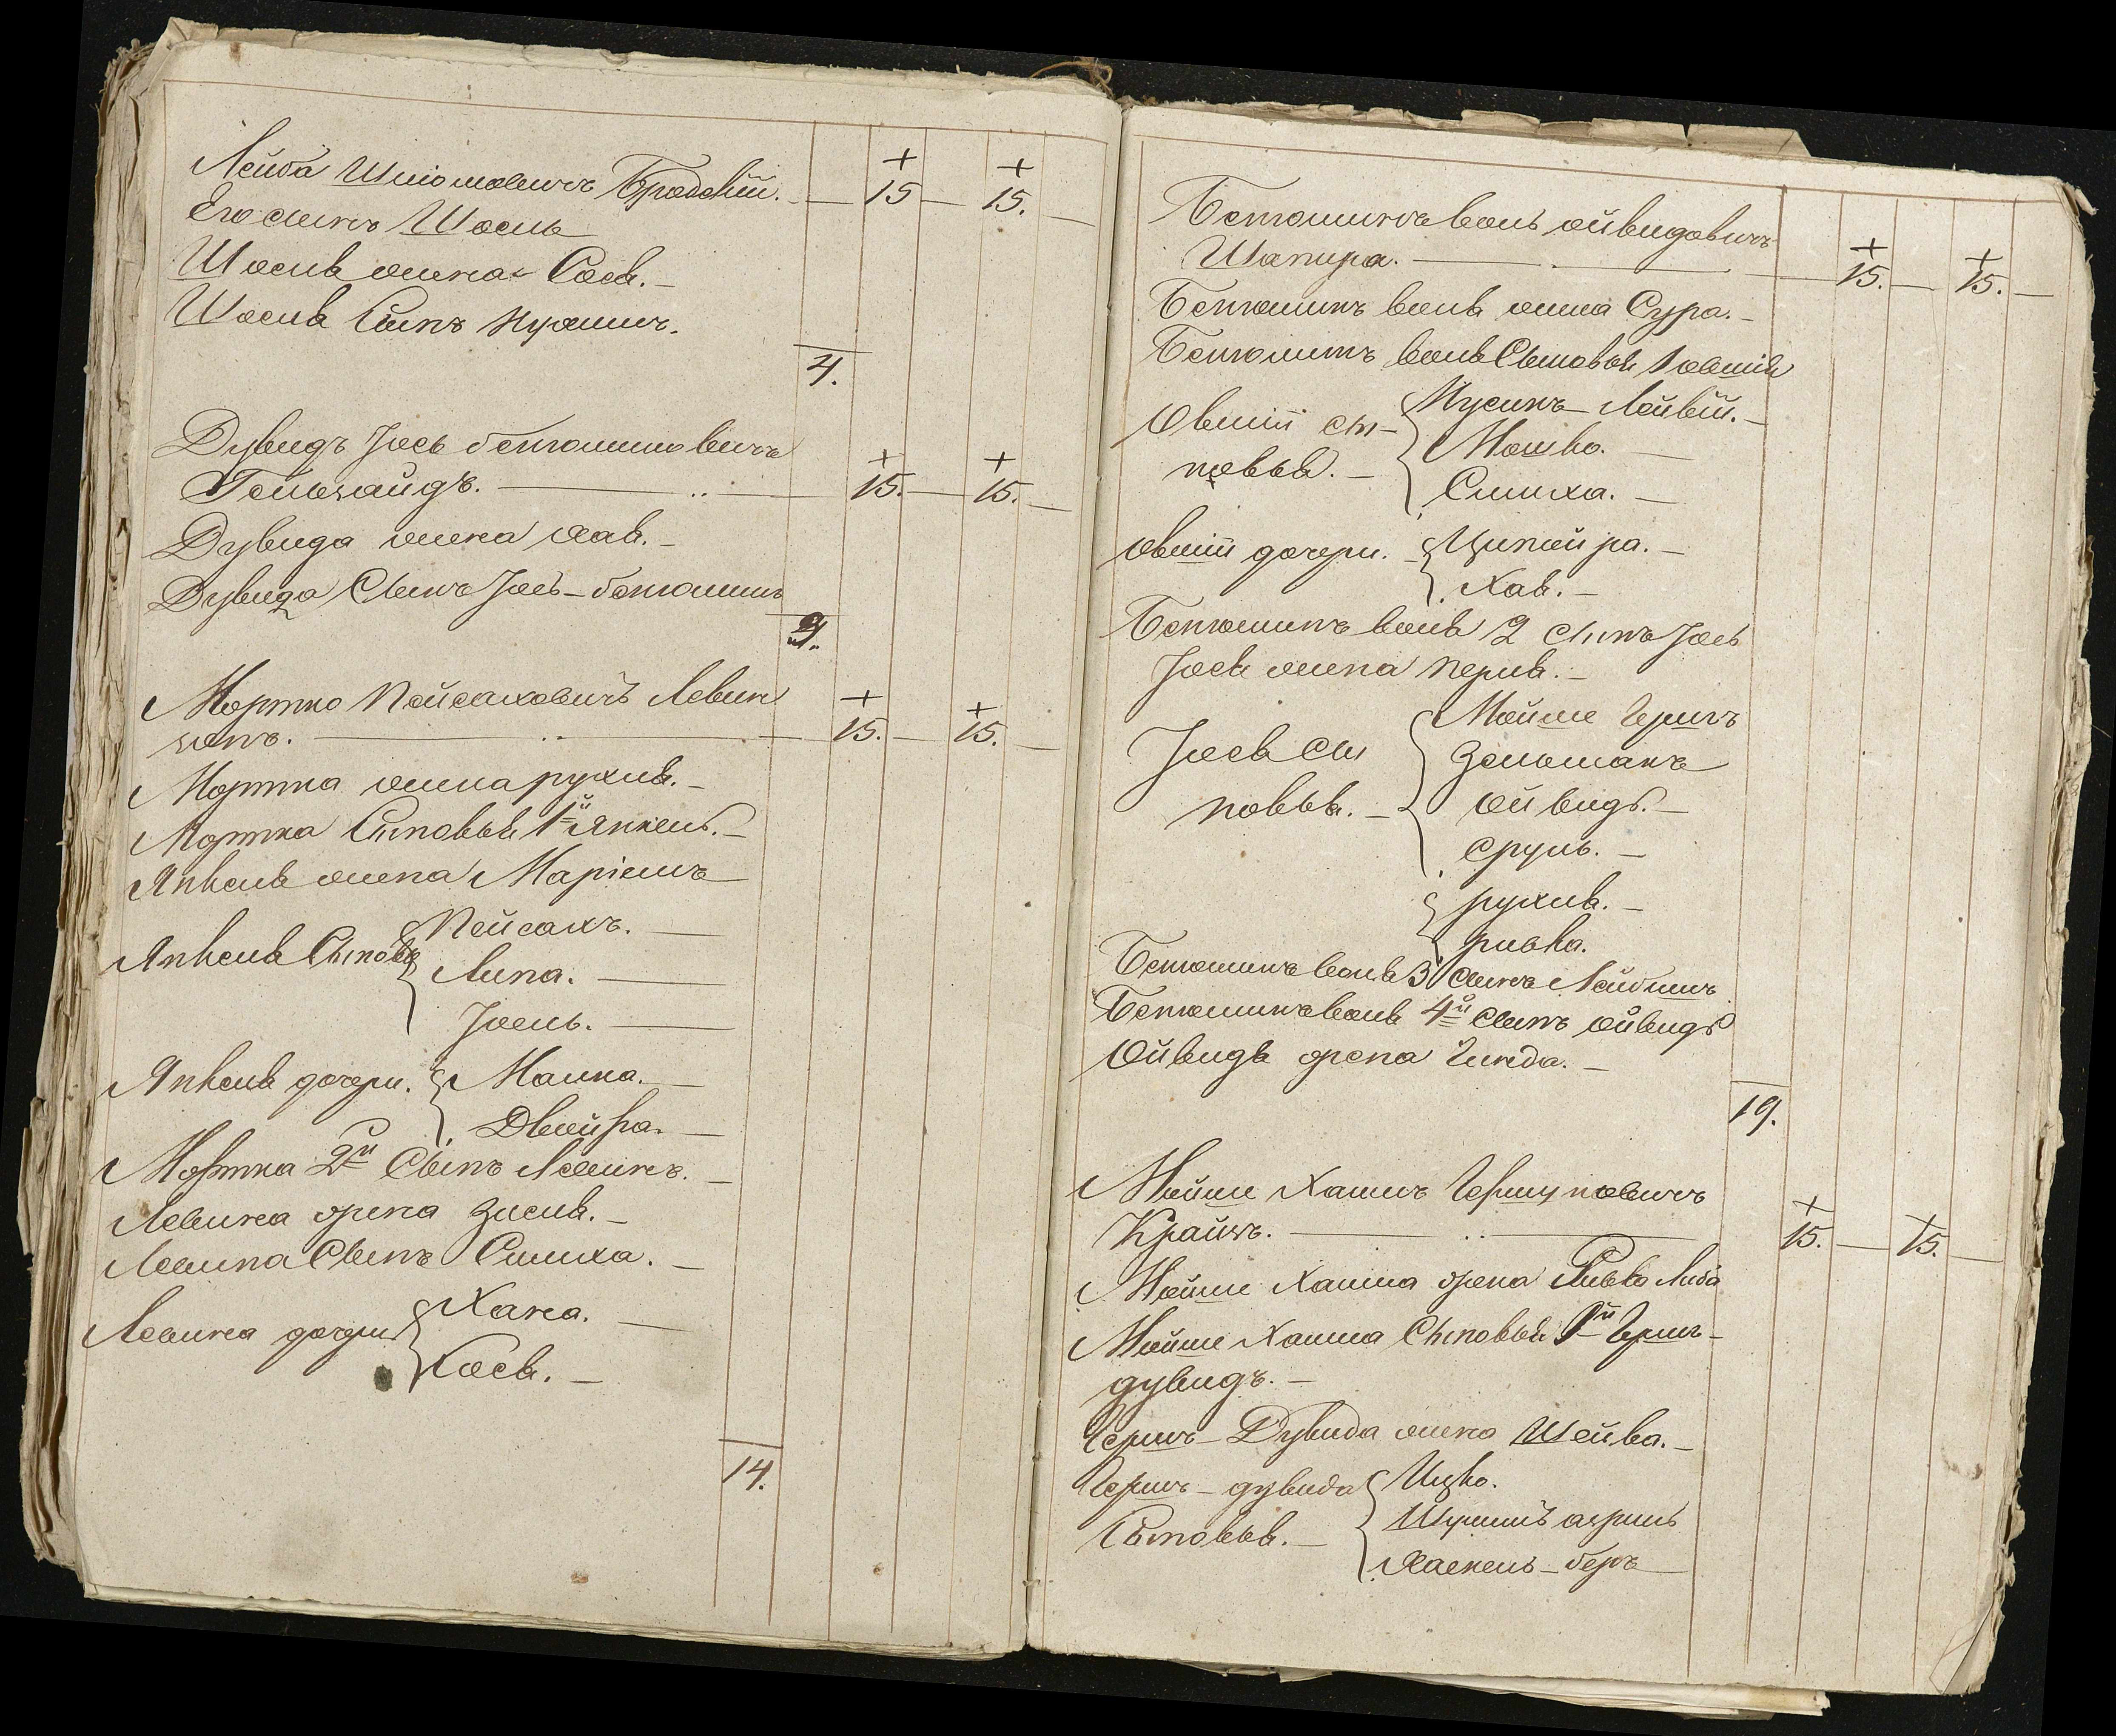 Лейба Шліомовичъ Бродскій. — 15 — 15. —
Его сынъ Шоель
Шоеля жена Сося. —
Шоеля Сынъ Нухимъ.
4.
Дувидъ Іось беньоминовичъ
Гельзайдъ. — 15. — 15. —
Дувида жена хая. —
Дувида Сынъ Іось-беньоминъ
4.
Мортко Пейсаховичъ Левин
зонъ. — 15. — 15. —
Мортка жена рухля. —
Мортка Сыновья 1й Янкель. —
Янкеля жена Маріемъ
Янкеля Сыновья Пейсахъ. —
Липа. —
Іоель. —
Янкеля дочери. Малка. —
Двейра. —
Мортка 2й Сынъ Левикъ. —
Левика жена Зисля. —
Левика Сынъ Симха. —
Левика дочери Хана. —
Хося. —
14.
Беньоминъ волъ ойвидовичъ
Шапира. — 15. — 15. —
Беньоминъ воля жена Сура. —
Беньоминъ воля Сыновья 1 овшій
Овшій сы- Нусинъ Лейвій. —
новья. — Мошко. —
Симха. —
Овшій дочери. Ципойра. —
Хая. —
Беньоминъ воля 2 сынъ Іось
Іося жена перля. —
Іося сы Мойше Гершъ
новья. — Зельманъ
ойвидъ. —
сруль. —
рухля. —
ривка.
Беньоминъ воля 3 сынъ Лейбишъ
Беньоминъ воля 4й сынъ ойвидъ
Ойвида жена Гинда. —
19.
Мойше Хаимъ Гершуновичъ
Крайзъ. — 15. — 15. —
Мойше Хаима жена Ривка Либа
Мойше Хаима Сыновья 1й Гершъ-
дувидъ. —
Гершъ-Дувида жена Шейва. —
Гершъ-дувида Ицко.
Сыновья. — Шулимъ
Хаскель-беръ —